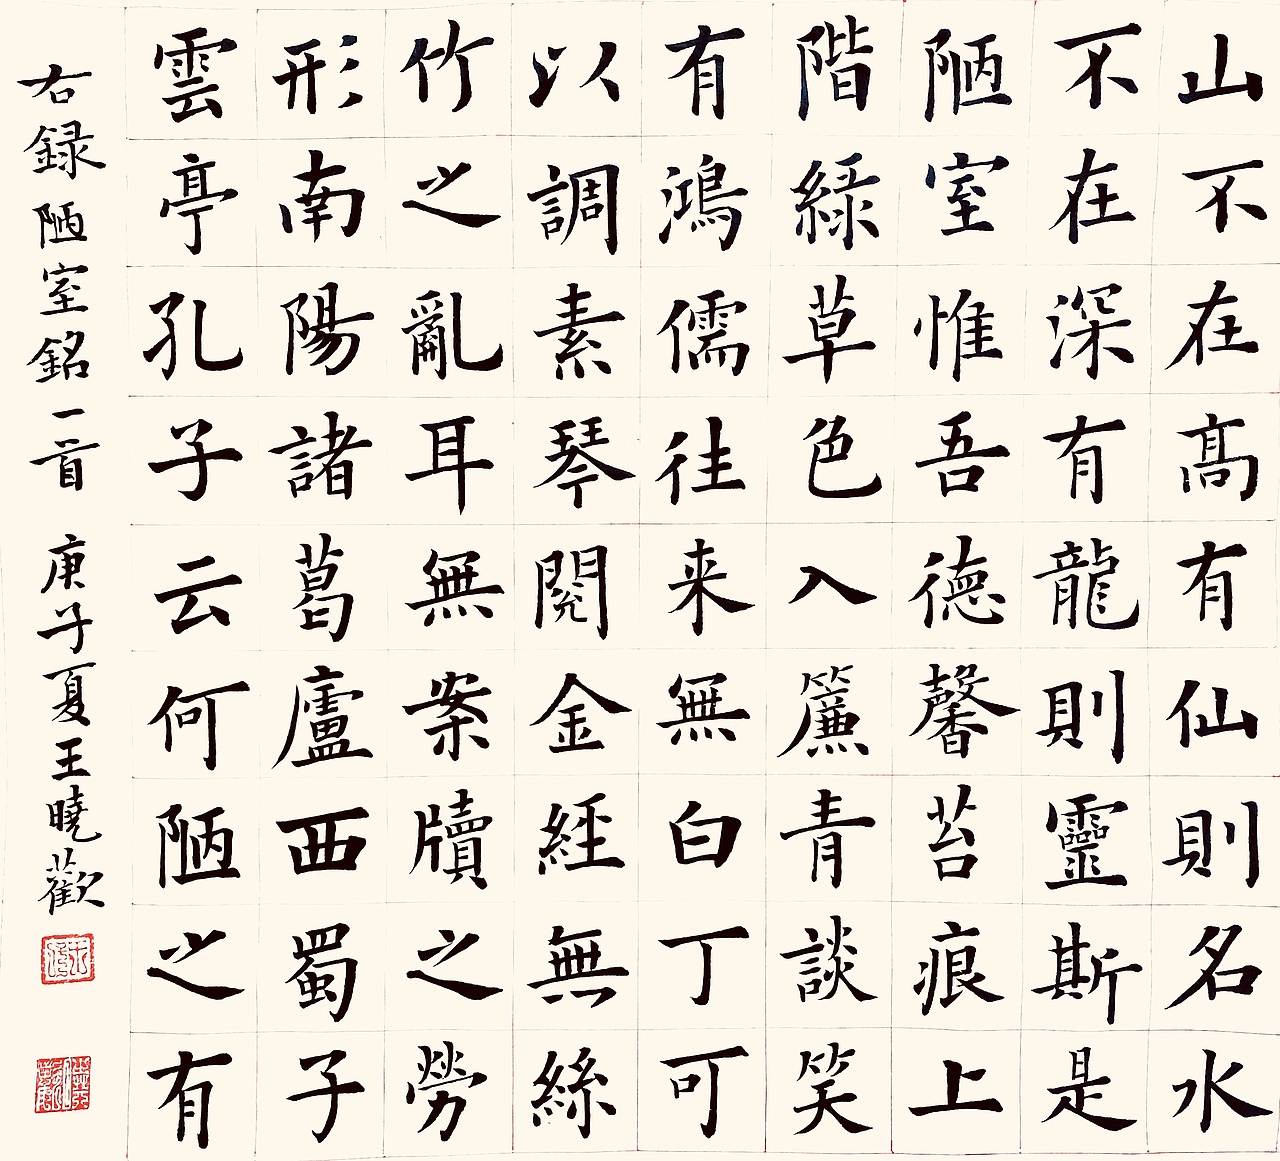 山不在高有仙則名水
不在深有龍則靈斯是
陋室惟吾德馨苔痕上
階綠草色入簾青談笑
有鴻儒往来無白丁可
以調素琴閱金經無絲
竹之亂耳無案牘之勞
形南陽諸葛廬西蜀子
雲亭孔子云何陋之有
右録陋室銘一首 庚子夏王曉歡